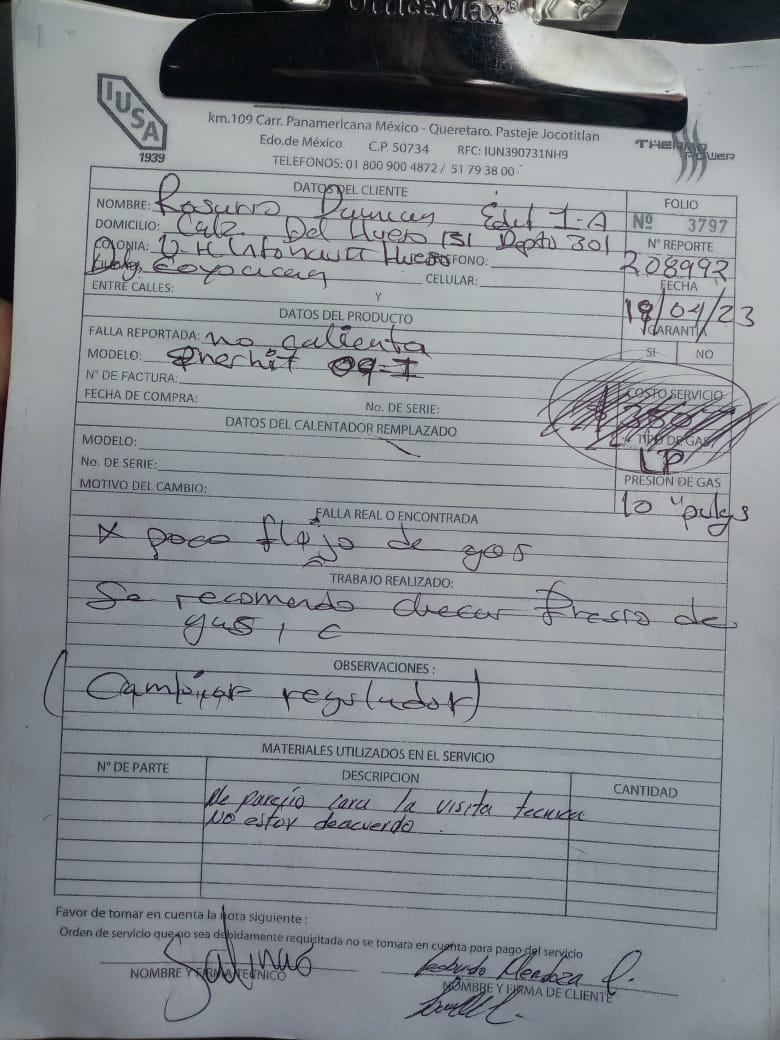 OfficeMax®
IUSA
1939
km.109 Carr. Panamericana México - Queretaro. Pasteje Jocotitlan
Edo.de México C.P. 50734 RFC: IUN390731NH9
TELEFONOS: 01 800 900 4872 / 51 79 38 00
THERMO POWER
DATOS DEL CLIENTE
FOLIO
NOMBRE: Rosurro Edif 1-A
Nº 3797
DOMICILIO: Calz Del Hueso 151 Depto 301
Nº REPORTE
COLONIA: U H Infonavit Hueso
208992
Coyoacan CELULAR:
FECHA
ENTRE CALLES: Y
18/04/23
DATOS DEL PRODUCTO
GARANTIA
FALLA REPORTADA: no calienta
SI NO
MODELO: 09-I
COSTO SERVICIO
N° DE FACTURA:
FECHA DE COMPRA: No. DE SERIE:
TIPO DE GAS
DATOS DEL CALENTADOR REMPLAZADO
LP
MODELO:
PRESION DE GAS
No. DE SERIE:
10 "pulgs
MOTIVO DEL CAMBIO:
FALLA REAL O ENCONTRADA
x poco flujo de gas
TRABAJO REALIZADO:
Se recomendo checar Presio de
gas, c
OBSERVACIONES :
(Cambiar regulador)
MATERIALES UTILIZADOS EN EL SERVICIO
N° DE PARTE DESCRIPCION CANTIDAD
Me parejio cara la visita tecnica
NO estoy deacuerdo.
Favor de tomar en cuenta la nota siguiente :
Orden de servicio que no sea debidamente requisitada no se tomara en cuenta para pago del servicio
Salinas
Mendoza
NOMBRE Y FIRMA TECNICO NOMBRE Y FIRMA DE CLIENTE